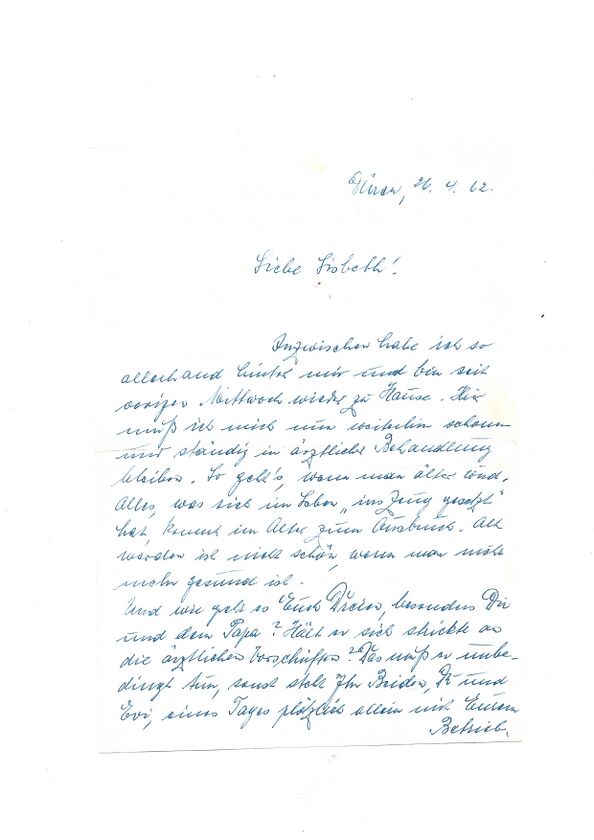 Düren, 26. 4. 62.
Liebe Lisbeth!
Inzwischen habe ich so
allerhand hinter mir und bin seit
voriger Mittwoch wieder zu Hause. Hier
muß ich mich nun weiterhin schonen
und ständig in ärztlicher Behandlung
bleiben. So geht's, wenn man älter wird.
Alles, was sich im Leben „ins Zeug gesetzt"
hat, kommt im Alter zum Ausbruch. Alt
werden ist nicht schön, wenn man nicht
mehr gesund ist.
Und wie geht es Euch Dreien, besonders Dir
und dem Papa? Hält er sich strickte an
die ärztlichen Vorschriften? Das muß er unbe-
dingt tun, sonst steht Ihr Beiden, Du und
Evi, eines Tages plötzlich allein mit Eurem
Betrieb.